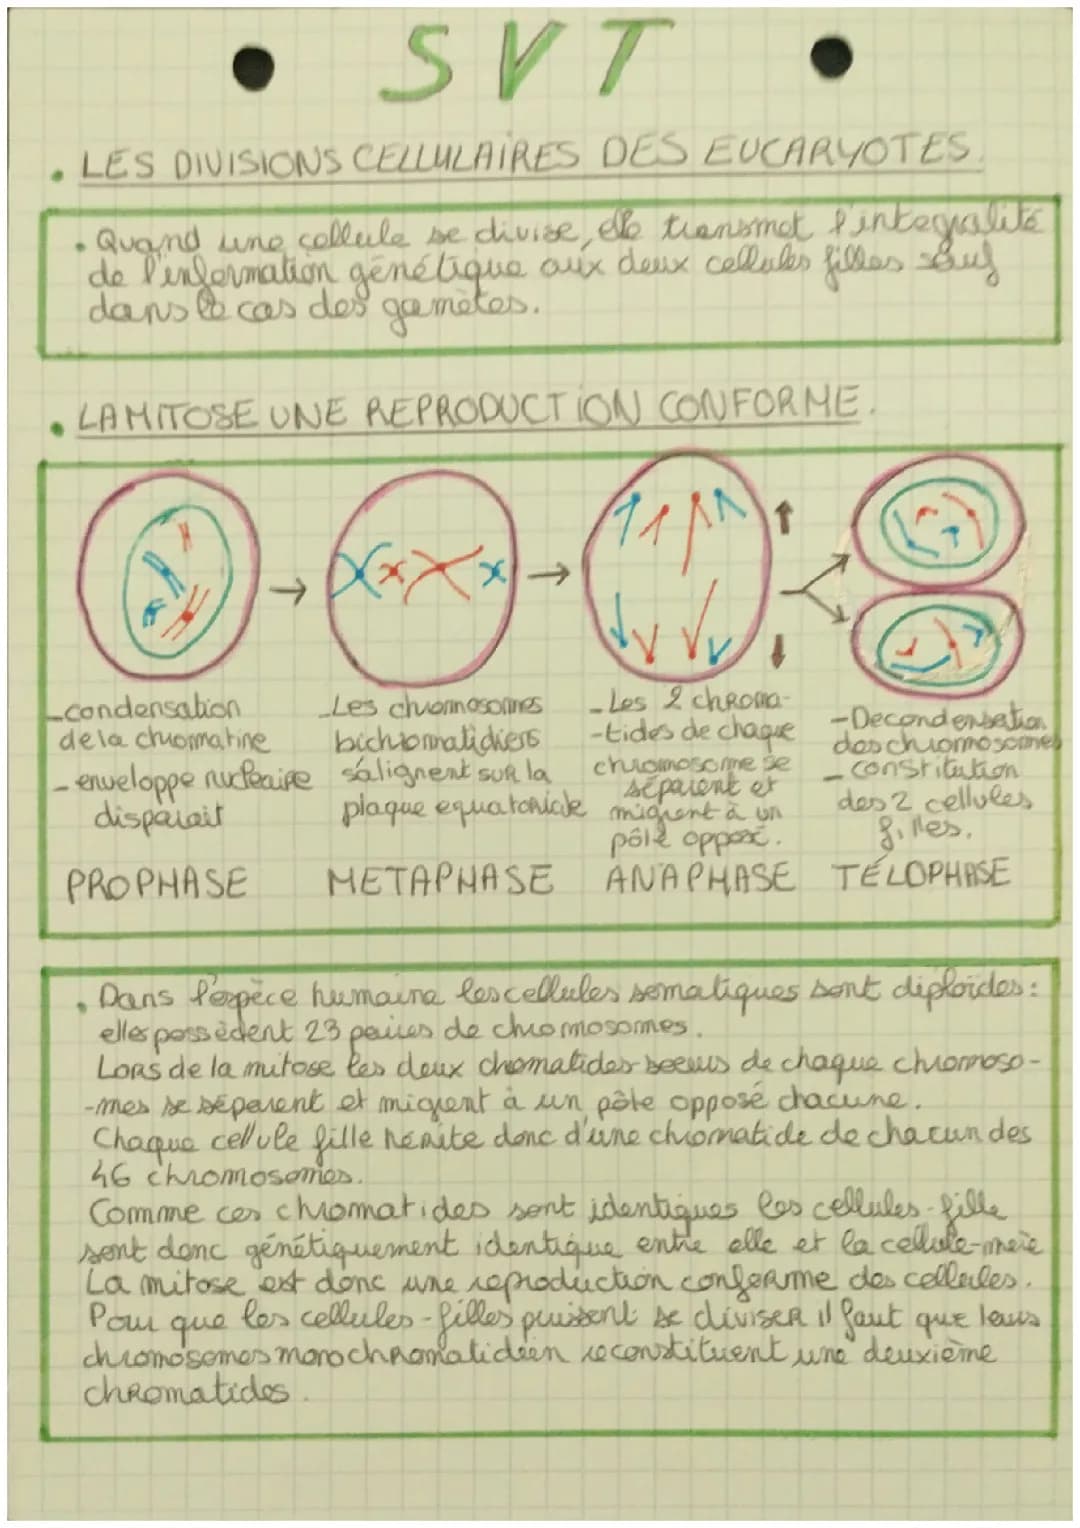 SVT
• LES DIVISIONS CELLULAIRES DES EUCARYOTES.
• Quand une cellule se divise, elle transmet l'integralité
de l'information génétique aux deux cellules filles sauf
dans le cas des gamètes.
• LA MITOSE UNE REPRODUCTION CONFORME.
- condensation
de la chromatine
- enveloppe nucléaire
disparait
PROPHASE
- Les chromosomes
bichromatidiens
s'alignent sur la
plaque equatoriale
METAPHASE
- Les 2 chroma-
-tides de chaque
chromosome se
séparent et
migrent à un
pôle opposé.
ANAPHASE
- Decondensation
des chromosomes
- constitution
des 2 cellules
filles.
TÉLOPHASE
• Dans l'espèce humaine les cellules somatiques sont diploïdes :
elles possèdent 23 paires de chromosomes.
Lors de la mitose les deux chomatides-soeurs de chaque chromoso-
-mes se séparent et migrent à un pôle opposé chacune.
Chaque cellule fille hérite donc d'une chromatide de chacun des
46 chromosomes.
Comme ces chromatides sont identiques les cellules-fille
sont donc génétiquement identique entre elle et la cellule-mère
La mitose est donc une reproduction conforme des cellules.
Pour que les cellules-filles puissent se diviser il faut que leurs
chromosomes monochromatidien reconstituent une deuxième
chromatides.